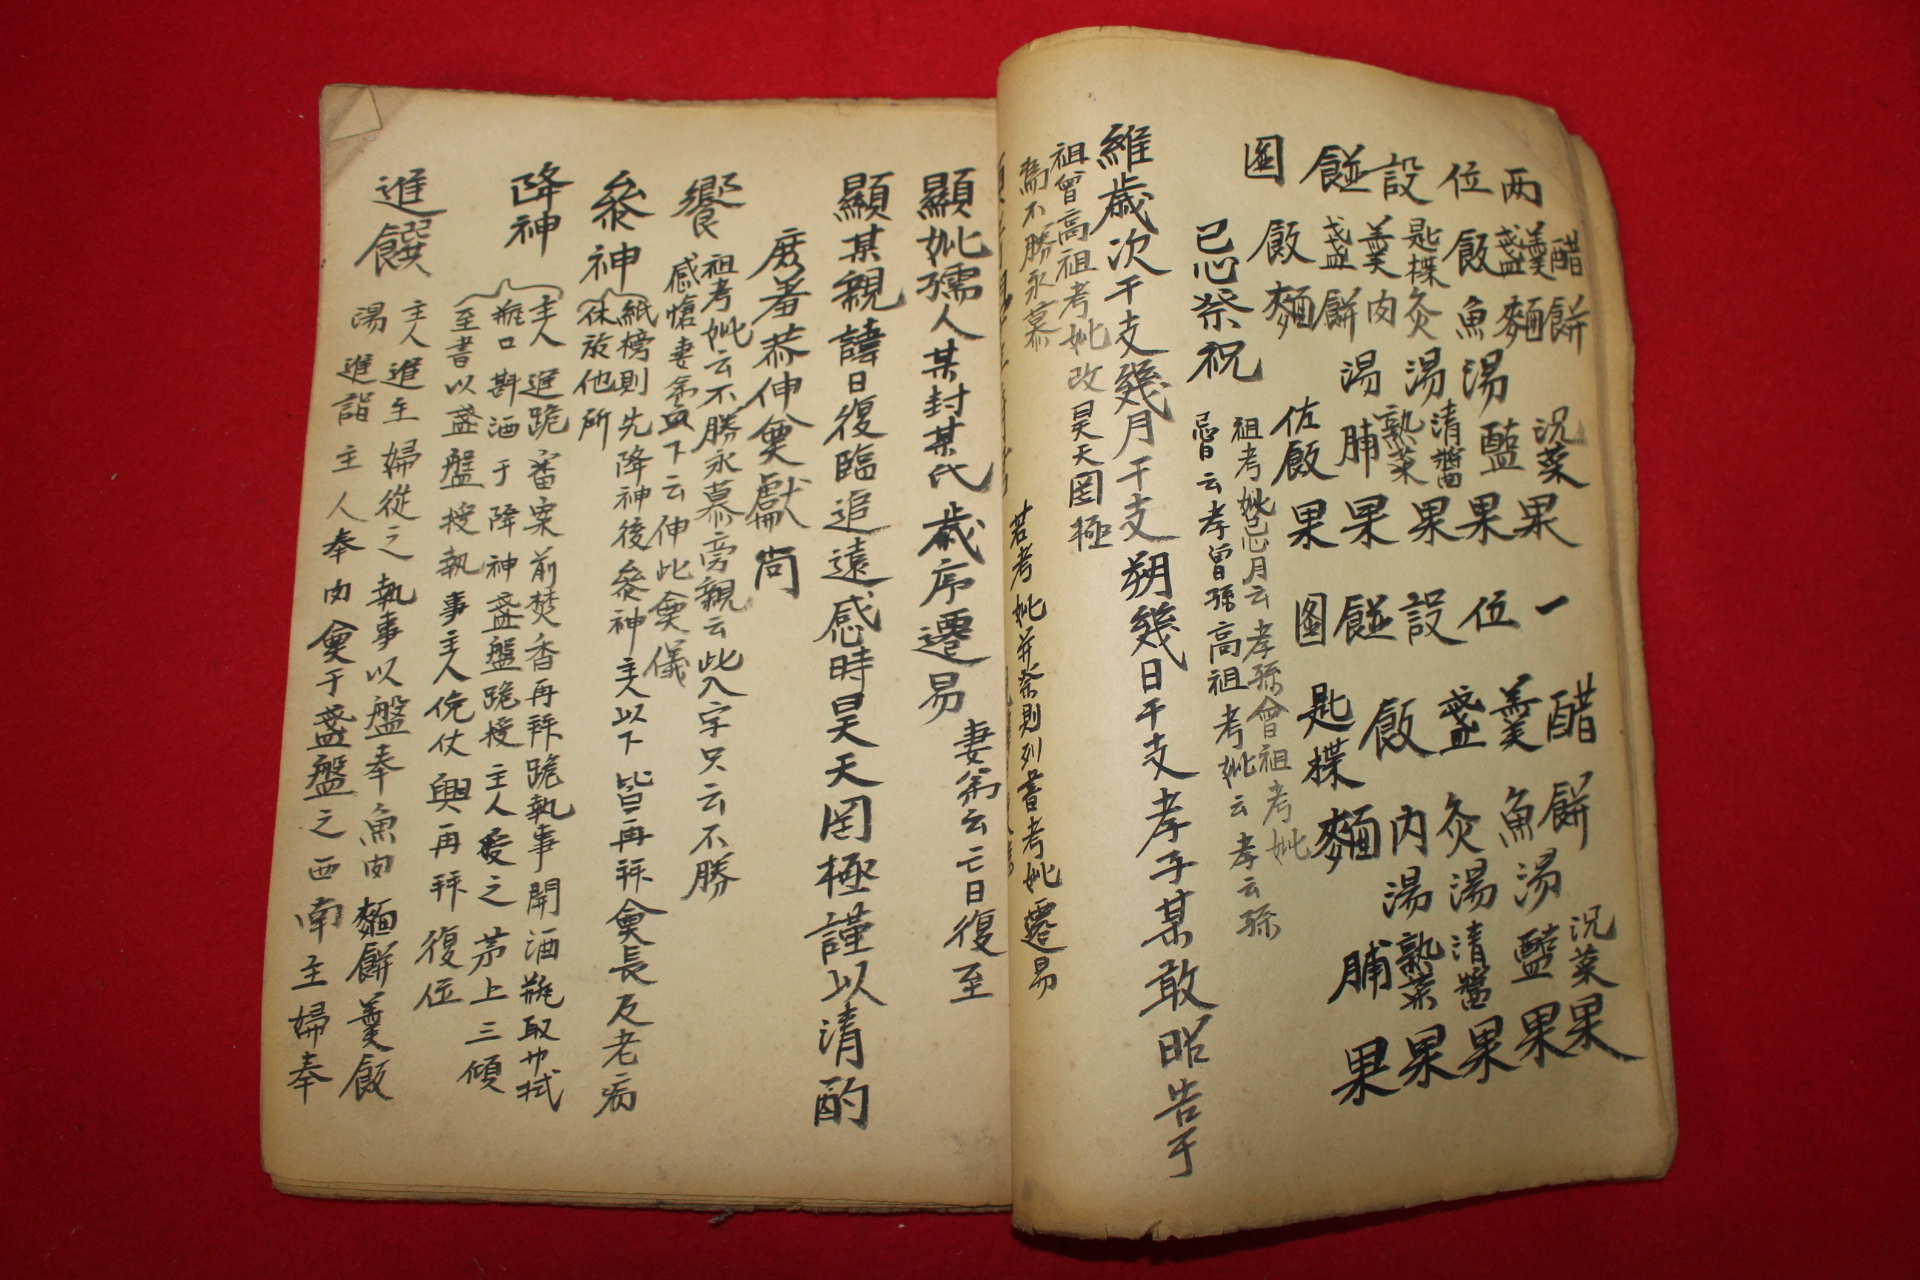 两位設䭈圖
醋羹盞飯匙楪羹盞飯
餅麵魚炙肉餅麵
湯湯湯
況菜醢清醬熟菜脯佐飯
果果果果果
一位設䭈圖
醋羹盞飯匙楪
餅魚炙肉麵
湯湯湯
況菜醢清醬熟菜脯
果果果果果
忌祭祝
祖考妣忌月云孝孫曾祖考妣
忌日云孝曾孫高祖考妣云孝云孫
維歲次干支幾月干支朔幾日干支孝子某敢昭告于
祖曾高祖考妣改昊天罔極
爲不勝永慕
若考妣并祭則列書考妣遷易
顯妣孺人某封某氏歲序遷易
妻弟云亡日復至
顯某親諱日復臨追遠感時昊天罔極謹以清酌
庶羞恭伸奠獻尚
饗
祖考妣云不勝永慕旁親云此入字只云不勝
感愴妻弟以下云伸此奠儀
參神
紙榜則先降神後參神主人以下皆再拜奠長及老病
休於他所
降神
主人進跪審案前焚香再拜跪執事開酒甁取巾拭
甁口斟酒于降神盞盤跪授主人受之茅上三傾
至書以盞盤授執事主人俛伏興再拜復位
進饌
主人進主婦從之執事以盤奉魚肉麵餅羹飯
湯進詣主人奉肉奠于盞盤之西南主婦奉